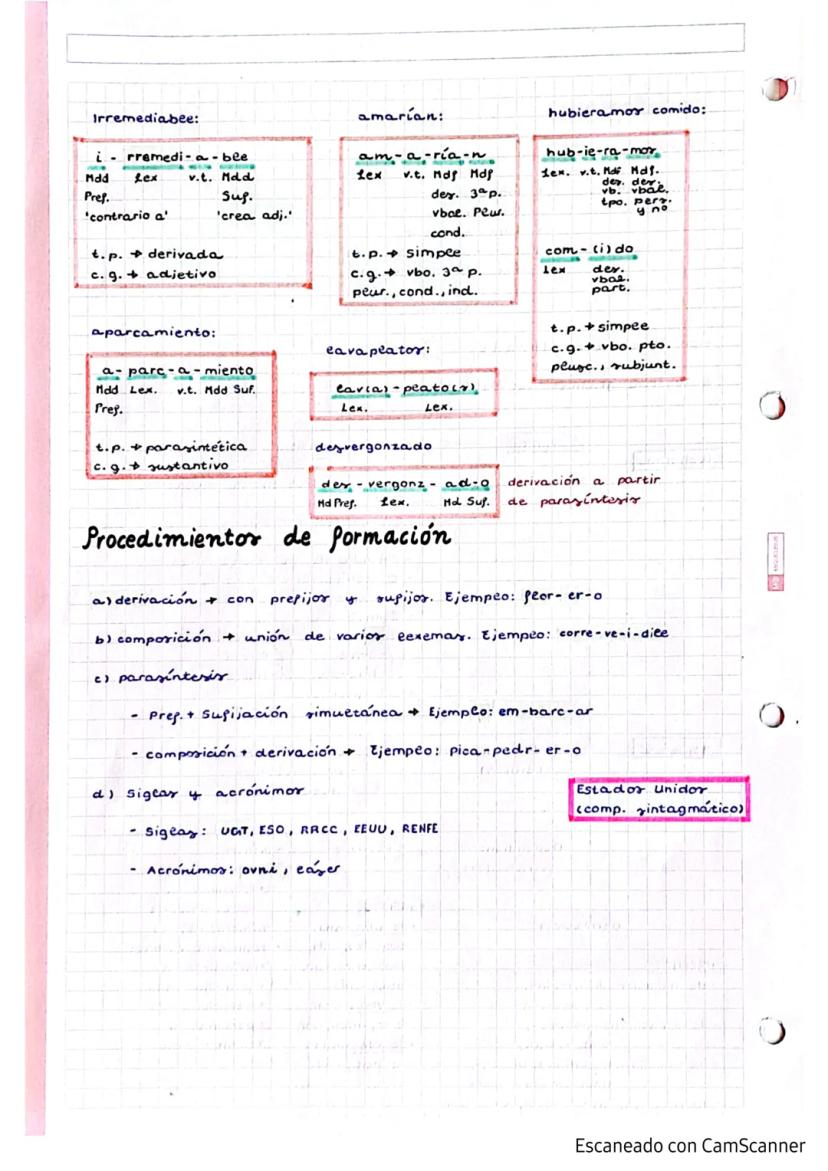 Irremediable:
i - rremedi - a - ble
Mdd Lex v.t. Mdd
Pref. Suf.
'contrario a' 'crea adj.'
t.p. → derivada
c.g. → adjetivo
amarían:
am - a - ría - n
Lex v.t. Mdf Mdf
des. 3ª p.
vbal. Plur.
cond.
t.p. → simple
c.g. → vbo. 3ª p.
plur., cond., ind.
hubieramos comido:
hub-ie-ra-mos
Lex. v.t. Mdf Mdf.
des. des.
vb. vbal.
tpo. pers.
y nº
com - (i)do
Lex des.
vbal.
part.
t.p. → simple
c.g. → vbo. pto.
plusc., subjunt.
aparcamiento:
a - parc - a - miento
Mdd Lex. v.t. Mdd Suf.
Pref.
t.p. → parasintética
c.g. → sustantivo
lavaplatos:
lav(a) - plato(s)
Lex. Lex.
desvergonzado
des - vergonz - ad-o
Md Pref. Lex. Md Suf.
derivación a partir
de parasíntesis
Procedimientos de formación
a) derivación → con prefijos y sufijos. Ejemplo: flor-er-o
b) composición → unión de varios lexemas. Ejemplo: corre-ve-i-dile
c) parasíntesis
- Pref. + Sufijación simultánea → Ejemplo: em-barc-ar
- composición + derivación → Ejemplo: pica-pedr-er-o
d) Siglas y acrónimos
Estados Unidos
(comp. sintagmático)
- Siglas: UGT, ESO, RRCC, EEUU, RENFE
- Acrónimos: ovni, láser
Escaneado con CamScanner